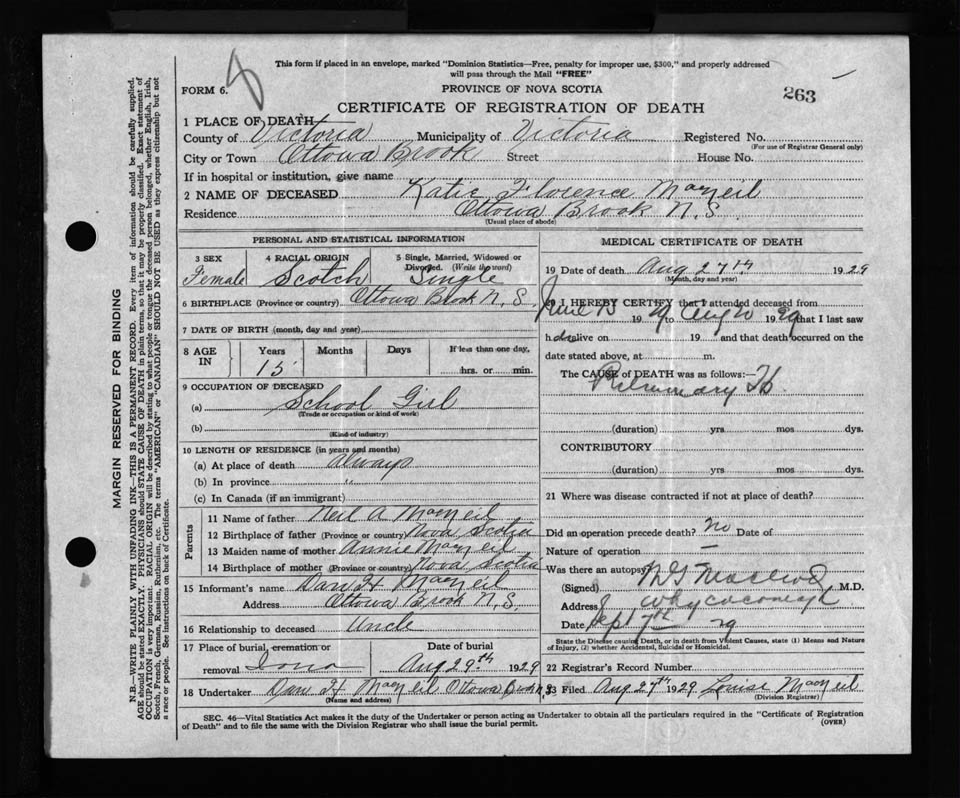 This form if placed in an envelope, marked "Dominion Statistics—Free, penalty for improper use, $300," and properly addressed
will pass through the Mail "FREE"
FORM 6.
PROVINCE OF NOVA SCOTIA
263
CERTIFICATE OF REGISTRATION OF DEATH
1 PLACE OF DEATH
County of Victoria Municipality of Victoria Registered No.
(For use of Registrar General only)
City or Town Ottowa Brook Street House No.
If in hospital or institution, give name
2 NAME OF DECEASED Katie Florence MacNeil
Residence Ottowa Brook N.S.
(Usual place of abode)
PERSONAL AND STATISTICAL INFORMATION
3 SEX 4 RACIAL ORIGIN 5 Single, Married, Widowed or
Divorced. (Write the word)
Female Scotch Single
6 BIRTHPLACE (Province or country) Ottowa Brook N.S.
7 DATE OF BIRTH (month, day and year)
8 AGE IN Years Months Days If less than one day,
15 hrs. or min.
9 OCCUPATION OF DECEASED
(a) School Girl
(Trade or occupation or kind of work)
(b)
(Kind of industry)
10 LENGTH OF RESIDENCE (in years and months)
(a) At place of death always
(b) In province "
(c) In Canada (if an immigrant)
Parents
11 Name of father Neil A MacNeil
12 Birthplace of father (Province or country) Nova Scotia
13 Maiden name of mother Annie MacNeil
14 Birthplace of mother (Province or country) Nova Scotia
15 Informant's name Dan H MacNeil
Address Ottowa Brook N.S.
16 Relationship to deceased Uncle
17 Place of burial, cremation or Date of burial
removal Iona Aug 29th 1929
18 Undertaker Dan H MacNeil Ottowa Brook N.S.
(Name and address)
MEDICAL CERTIFICATE OF DEATH
19 Date of death Aug 27th 1929
(Month, day and year)
20 I HEREBY CERTIFY that I attended deceased from
June 1929 to Aug 1929 that I last saw
h alive on 19 and that death occurred on the
date stated above, at m.
The CAUSE of DEATH was as follows:—
Pulmonary Tb
(duration) yrs mos dys.
CONTRIBUTORY
(duration) yrs mos dys.
21 Where was disease contracted if not at place of death?
Did an operation precede death? no Date of
Nature of operation —
Was there an autopsy
(Signed) MacLeod M.D.
Address Whycocomagh
Date Sept 7th 29
State the Disease causing Death, or in death from Violent Causes, state (1) Means and Nature
of Injury, (2) whether Accidental, Suicidal or Homicidal.
22 Registrar's Record Number
23 Filed Aug 27th 1929 Louise MacNeil
(Division Registrar)
SEC. 46—Vital Statistics Act makes it the duty of the Undertaker or person acting as Undertaker to obtain all the particulars required in the "Certificate of Registration
of Death" and to file the same with the Division Registrar who shall issue the burial permit.
(OVER)
MARGIN RESERVED FOR BINDING
N.B.—WRITE PLAINLY WITH UNFADING INK—THIS IS A PERMANENT RECORD. Every item of information should be carefully supplied.
AGE should be stated EXACTLY. PHYSICIANS should STATE CAUSE OF DEATH in plain terms, so that it may be properly classified. Exact statement of
OCCUPATION is very important. RACIAL ORIGIN will be described by stating to what people or tongue the deceased person belonged, whether English, Irish,
Scotch, French, German, Russian, Ruthenian, etc. The terms "AMERICAN" or "CANADIAN" SHOULD NOT BE USED as they express citizenship but not
a race or people. See instructions on back of Certificate.